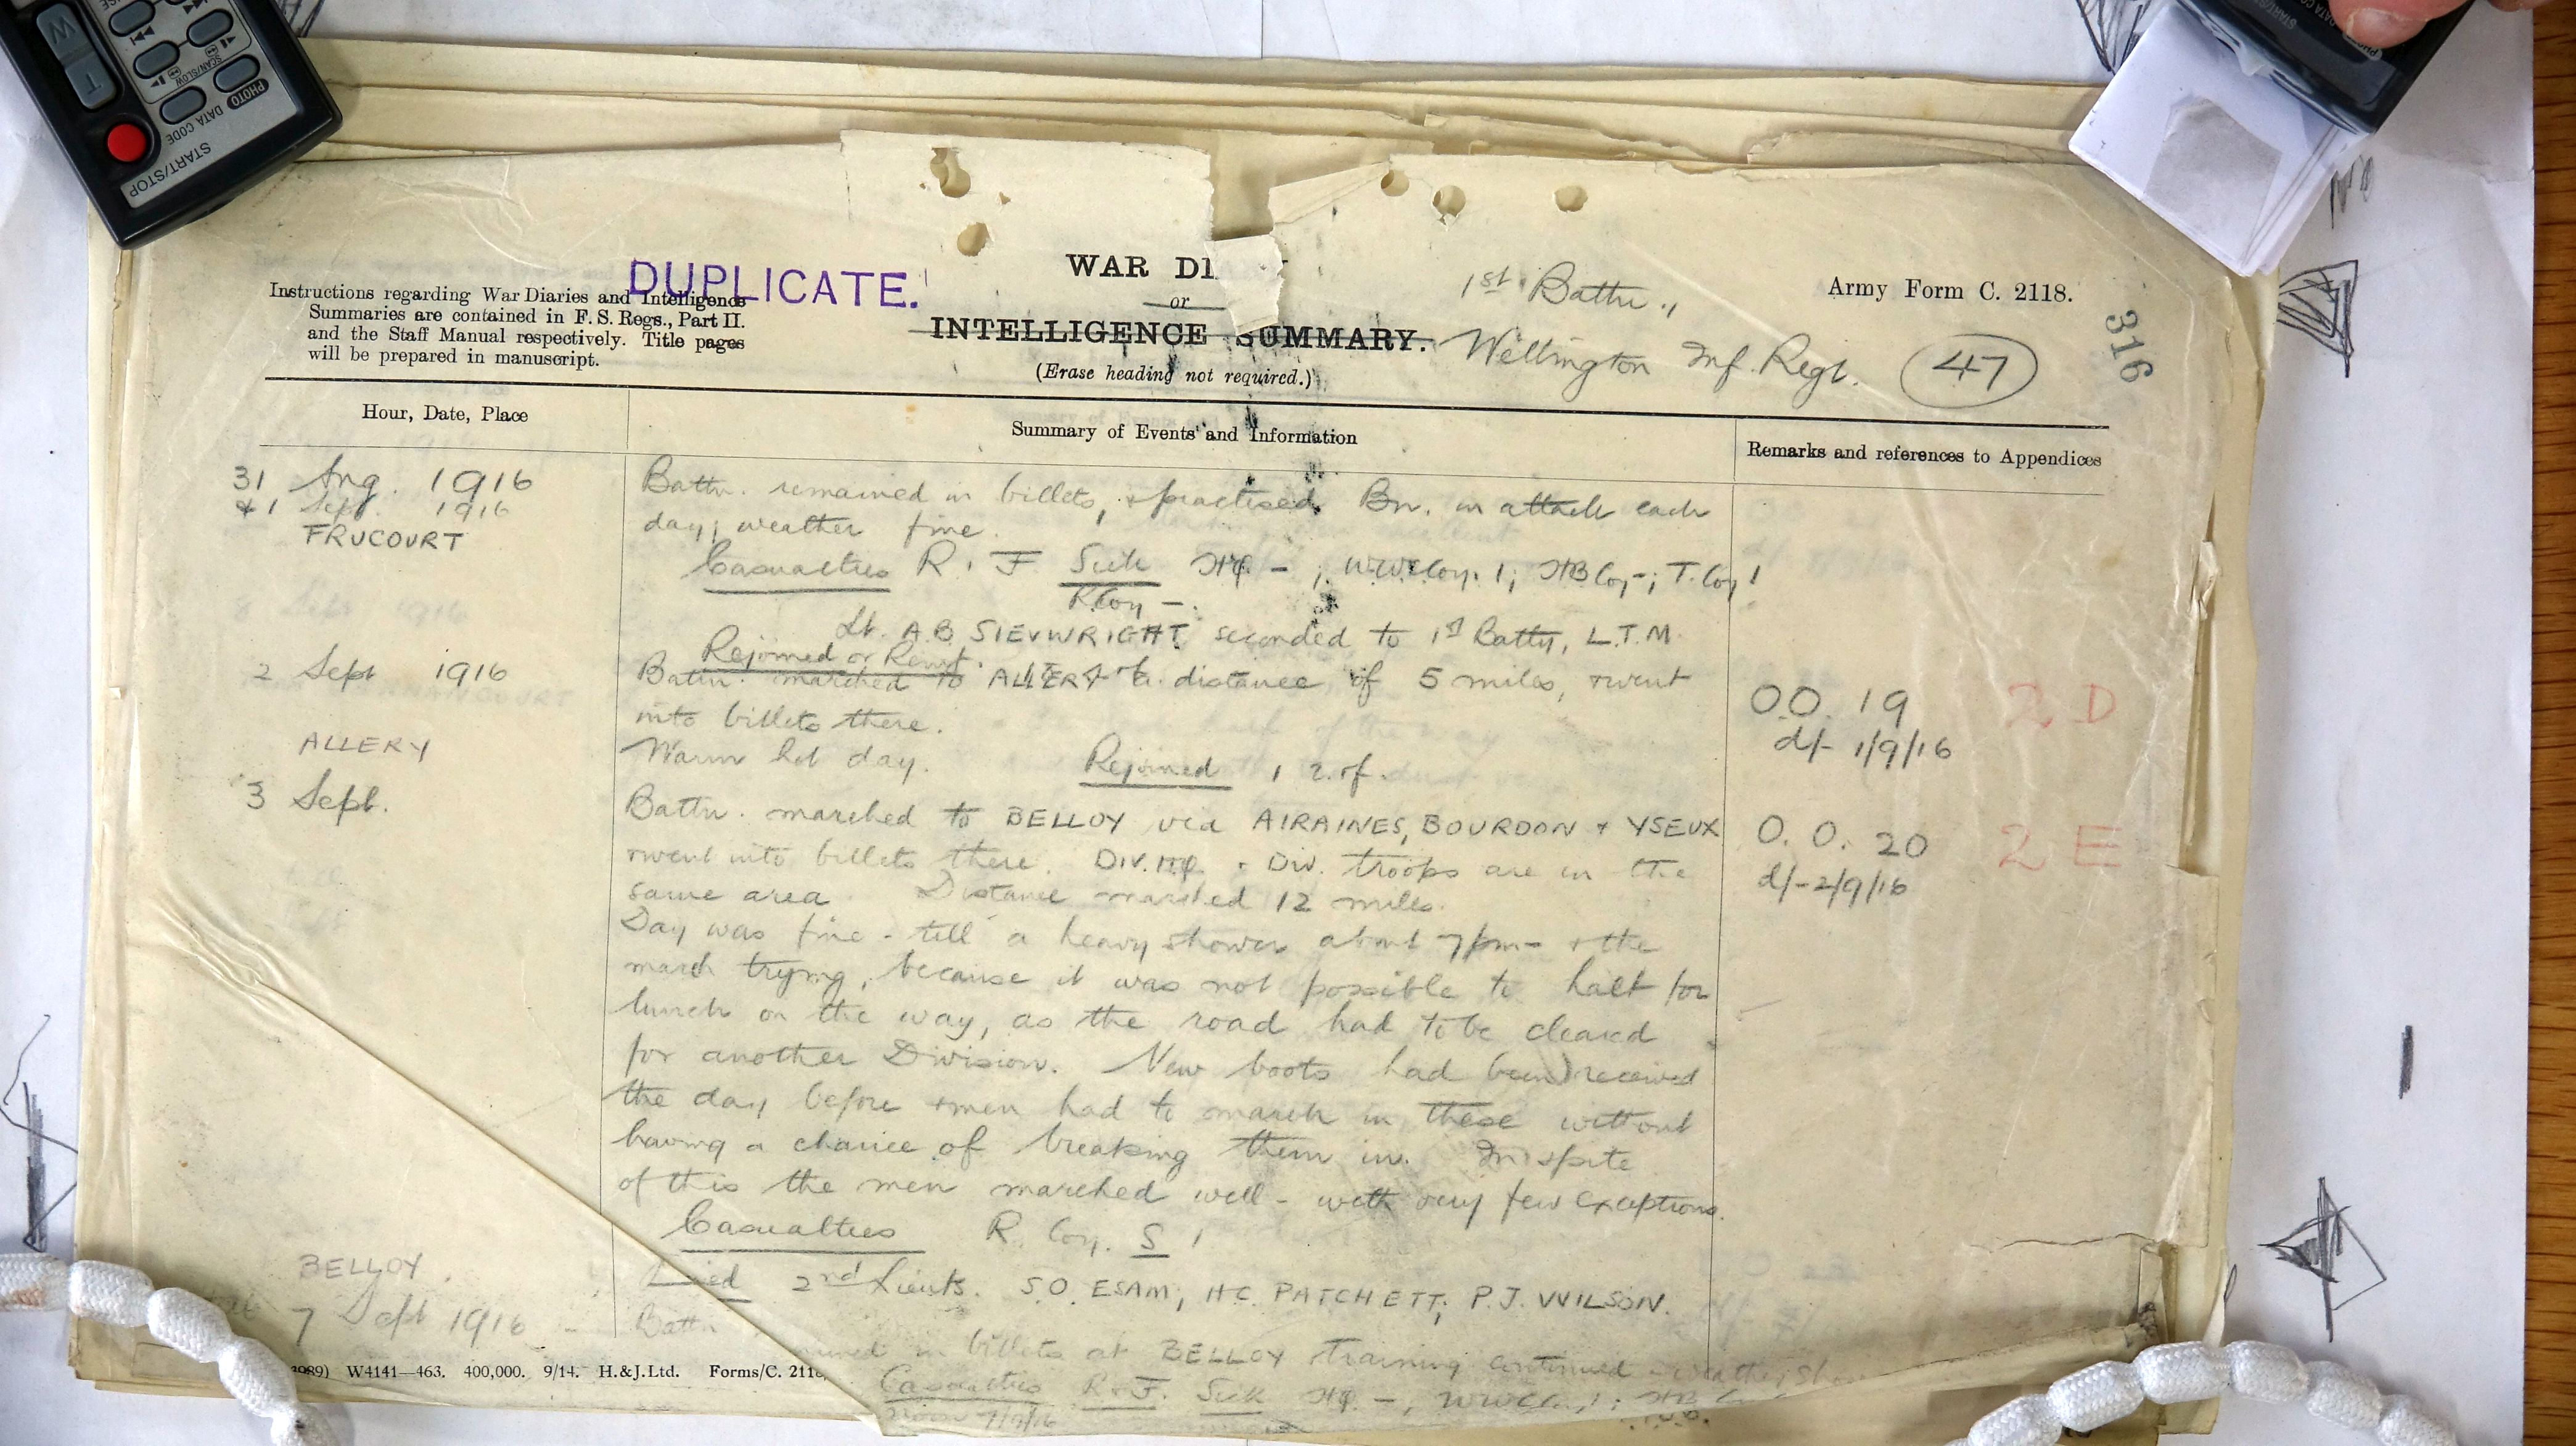 START/STOP
DATA CODE
PHOTO
SCAN/SLOW
W
T
DUPLICATE.
WAR DI
or
INTELLIGENCE SUMMARY.
(Erase heading not required.)
Instructions regarding War Diaries and Intelligence
Summaries are contained in F. S. Regs., Part II.
and the Staff Manual respectively. Title pages
will be prepared in manuscript.
1st Battn.,
Wellington Inf. Regt.
47
Army Form C. 2118.
316
Hour, Date, Place
Summary of Events and Information
Remarks and references to Appendices
31 Aug. 1916
& 1 Sept. 1916
FRUCOURT
Battn. remained in billets, & practised Bn. in attack each
day; weather fine.
Casualties R. F Sick HQ. - ; WWC Coy. 1; HB Coy -; T. Coy 1
R Coy -.
Lt. A.B SIEVWRIGHT seconded to 1st Batty, L.T.M.
Rejoined or Reinf.
2 Sept 1916
Battn. marched to ALLERY a distance of 5 miles, & went
into billets there.
O.O. 19
d/- 1/9/16
2 D
ALLERY
Warm hot day. Rejoined 1 2. of.
3 Sept.
Battn. marched to BELLOY via AIRAINES, BOURDON & YSEUX
& went into billets there. DIV. HQ. & Div. troops are in the
same area. Distance marched 12 miles.
O. O. 20
d/- 2/9/16
2 E
Day was fine - till a heavy shower about 7pm - & the
march trying, because it was not possible to halt for
lunch on the way, as the road had to be cleared
for another Division. New boots had been received
the day before & men had to march in these without
having a chance of breaking them in. In spite
of this the men marched well - with very few exceptions.
Casualties R. Coy. S 1
BELLOY.
2nd Lieuts. S.O. ESAM, H.C. PATCHETT, P.J. WILSON.
7 Sept 1916 -
Battn
in billets at BELLOY training continued -
Casualties R & F. Sick HQ -,
3989) W4141—463. 400,000. 9/14. H.&J.Ltd. Forms/C. 2118